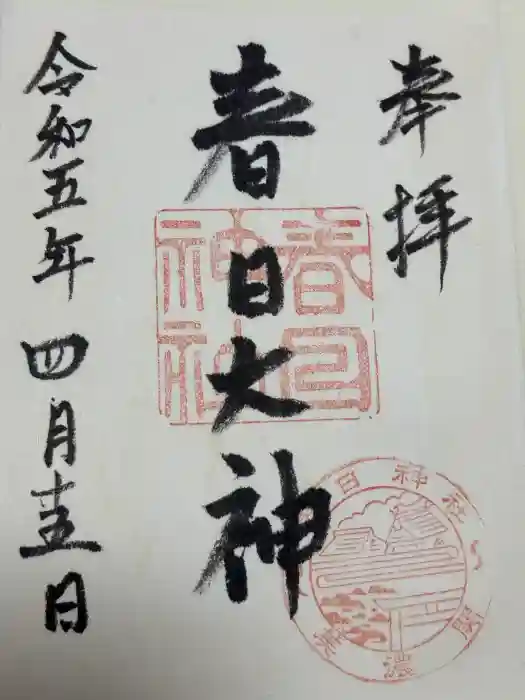 奉拝
春日大神
春日神社
令和五年四月十五日
日神社
美濃関